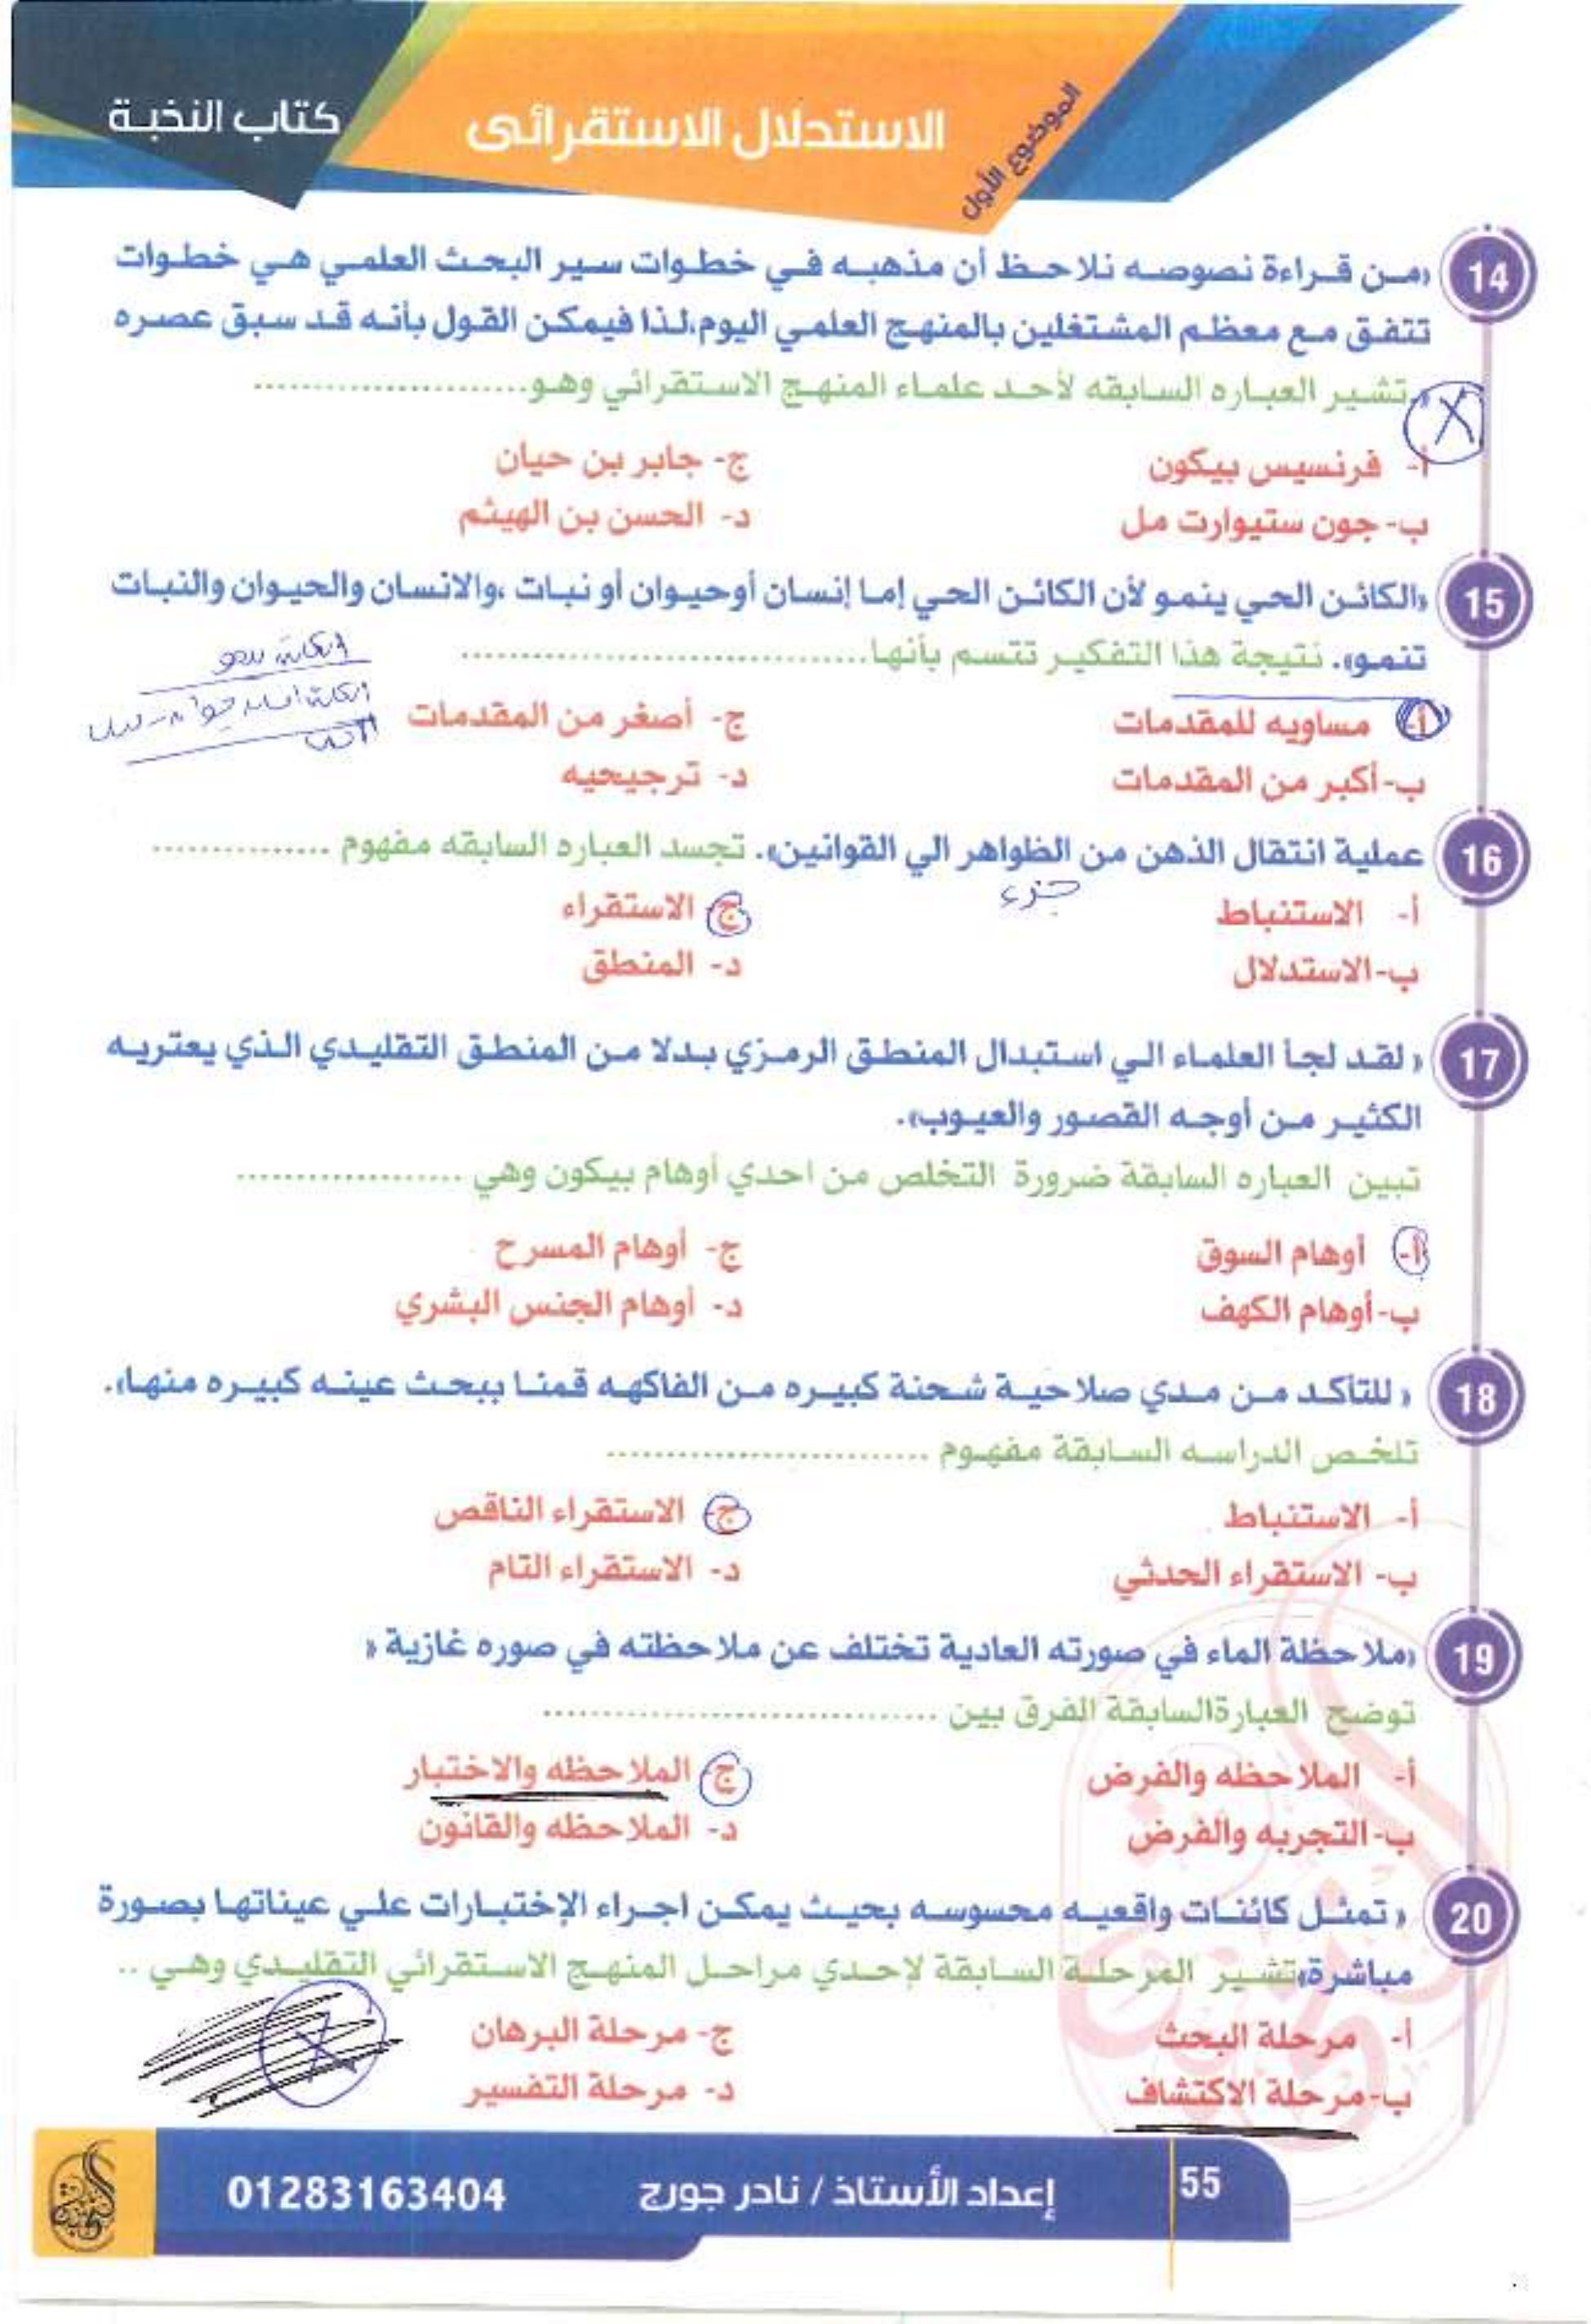 كتاب النخبة
الاستدلال الاستقرائى
الموضوع الأول
14 «من قراءة نصوصه نلاحظ أن مذهبه في خطوات سير البحث العلمي هي خطوات
تتفق مع معظم المشتغلين بالمنهج العلمي اليوم،لذا فيمكن القول بأنه قد سبق عصره
».تشير العباره السابقه لأحد علماء المنهج الاستقرائي وهو......................
أ- فرنسيس بيكون
ج- جابر بن حيان
ب- جون ستيوارت مل
د- الحسن بن الهيثم
15 «الكائن الحي ينمو لأن الكائن الحي إما إنسان أوحيوان أو نبات ،والانسان والحيوان والنبات
تنمو». نتيجة هذا التفكير تتسم بأنها..................................
أ- مساويه للمقدمات
ج- أصغر من المقدمات
ب- أكبر من المقدمات
د- ترجيحيه
16 عملية انتقال الذهن من الظواهر الي القوانين». تجسد العباره السابقه مفهوم ...............
جزء
أ- الاستنباط
ج- الاستقراء
ب- الاستدلال
د- المنطق
17 « لقد لجأ العلماء الي استبدال المنطق الرمزي بدلا من المنطق التقليدي الذي يعتريه
الكثير من أوجه القصور والعيوب».
تبين العباره السابقة ضرورة التخلص من احدي أوهام بيكون وهي ...................
أ- أوهام السوق
ج- أوهام المسرح
ب- أوهام الكهف
د- أوهام الجنس البشري
18 « للتأكد من مدي صلاحية شحنة كبيره من الفاكهه قمنا ببحث عينه كبيره منها».
تلخص الدراسه السابقة مفهوم ...........................
أ- الاستنباط
ج- الاستقراء الناقص
ب- الاستقراء الحدثي
د- الاستقراء التام
19 «ملاحظة الماء في صورته العادية تختلف عن ملاحظته في صوره غازية »
توضح العبارةالسابقة الفرق بين .................................
أ- الملاحظه والفرض
ج- الملاحظه والاختبار
ب- التجربه والفرض
د- الملاحظه والقانون
20 « تمثل كائنات واقعيه محسوسه بحيث يمكن اجراء الإختبارات علي عيناتها بصورة
مباشرة»تشير المرحلة السابقة لإحدي مراحل المنهج الاستقرائي التقليدي وهي ..
أ- مرحلة البحث
ج- مرحلة البرهان
ب- مرحلة الاكتشاف
د- مرحلة التفسير
55
إعداد الأستاذ / نادر جورج
01283163404